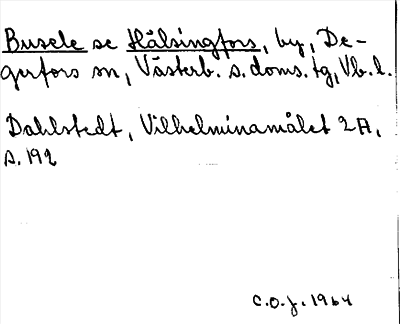 Busele se Hälsingfors, by, De-
gerfors sn, Västerb. s. doms. tg, Vb. l.
Dahlstedt, Vilhelminamålet 2A,
s. 192
C.O.J. 1964